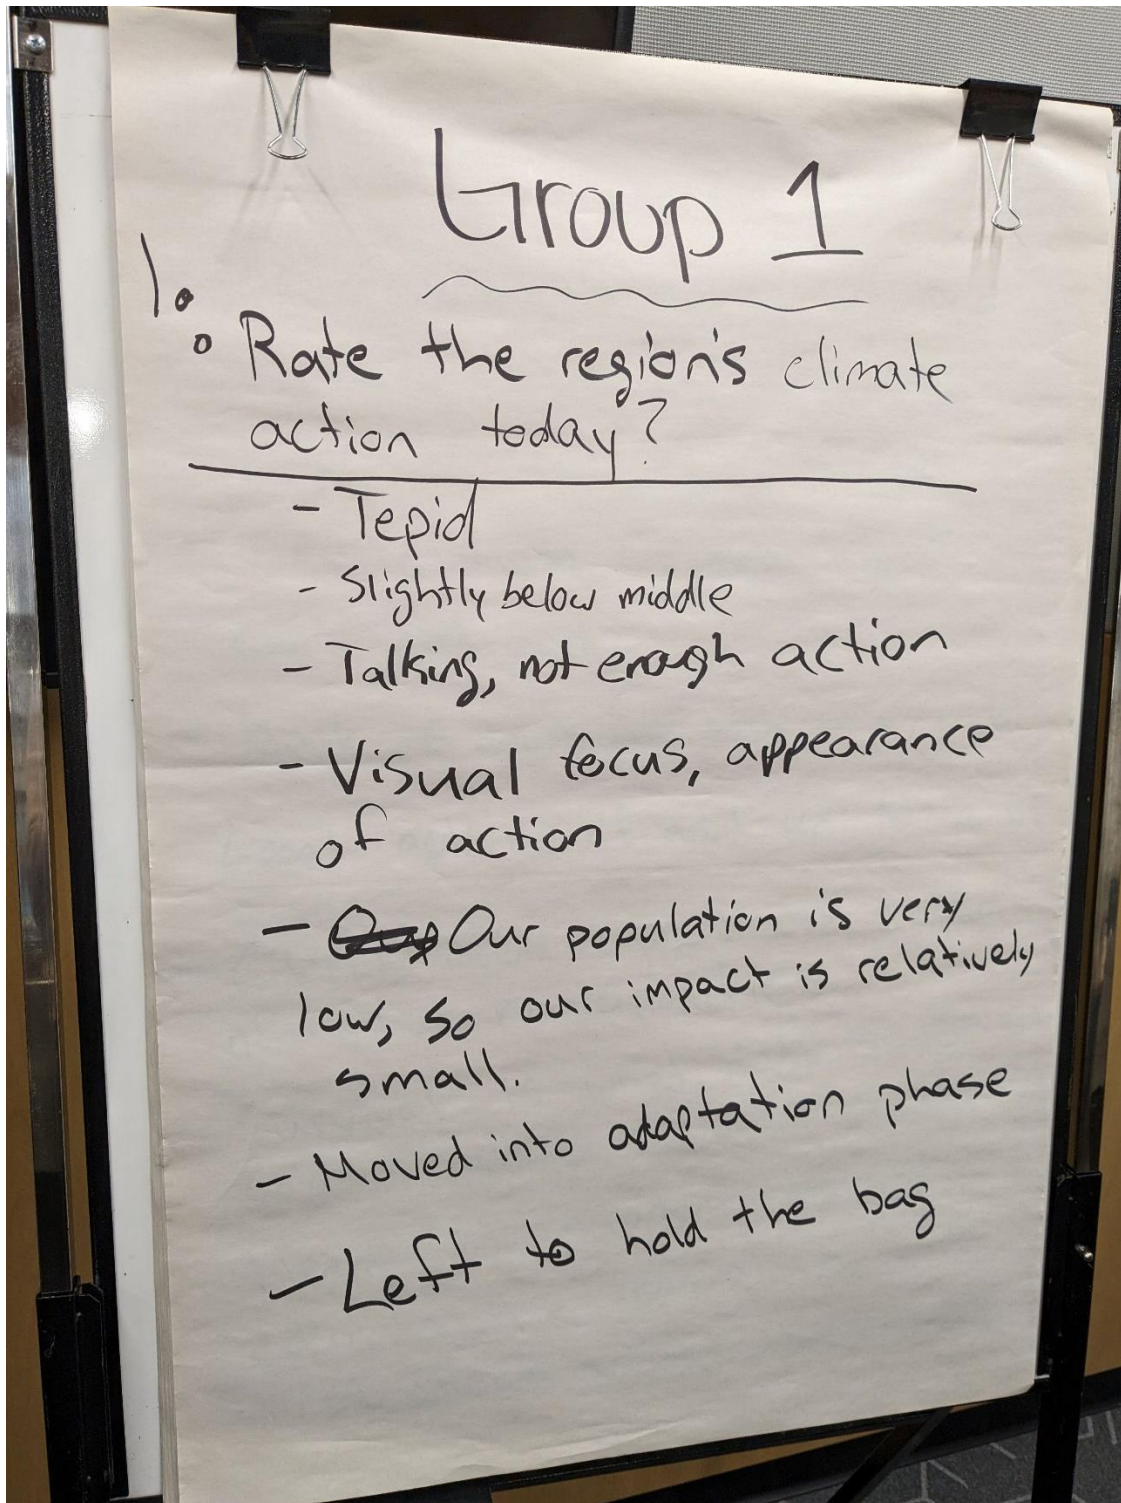 Group 1
1.
Rate the region's climate
action today?
- Tepid
- Slightly below middle
- Talking, not enough action
- Visual focus, appearance
of action
- Our population is very
low, so our impact is relatively
small.
- Moved into adaptation phase
- Left to hold the bag